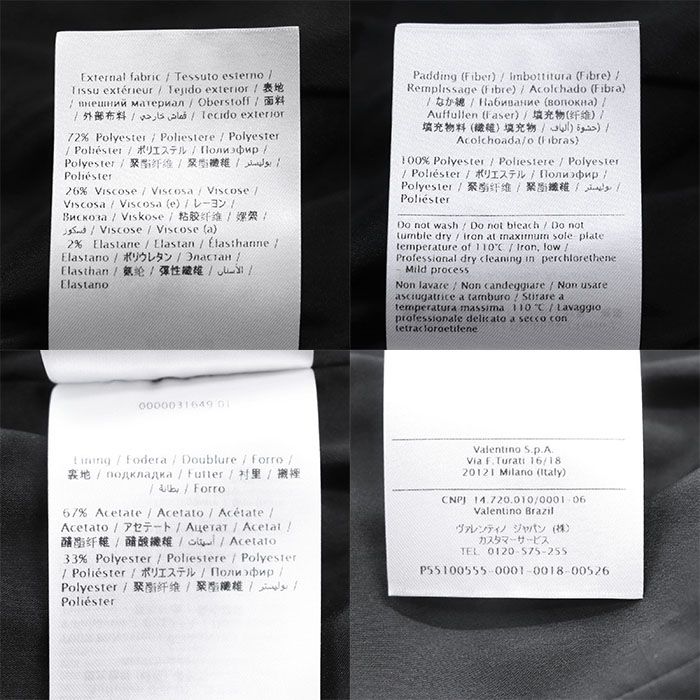 External fabric / Tessuto esterno /
Tissu extérieur / Tejido exterior / 表地
/ внешний материал / Oberstoff / 面料
/ 外部布料 / قماش خارجي / Tecido exterior
72% Polyester / Poliestere / Polyester /
Poliéster / ポリエステル / Полиэфир /
Polyester / 聚酯纤维 / 聚酯纖維 / بوليستر /
Poliéster
26% Viscose / Viscosa / Viscose /
Viscosa / Viscosa (e) / レーヨン /
Вискоза / Viskose / 粘胶纤维 / 嫘縈 /
فسكوز / Viscose / Viscose (a)
2% Elastane / Elastan / Élasthanne /
Elastano / ポリウレタン / Эластан /
Elasthan / 氨纶 / 彈性纖維 / الأستان /
Elastano
Padding (Fiber) / Imbottitura (Fibre) /
Remplissage (Fibre) / Acolchado (Fibra)
/ なか綿 / Набивание (волокна) /
Auffullen (Faser) / 填充物(纤维) /
填充物料 (纖維) 填充物 / حشوة (ألياف) /
Acolchoada/o (Fibras)
100% Polyester / Poliestere / Polyester
/ Poliéster / ポリエステル / Полиэфир /
Polyester / 聚酯纤维 / 聚酯纖維 / بوليستر /
Poliéster
Do not wash / Do not bleach / Do not
tumble dry / Iron at maximum sole-plate
temperature of 110°C / Iron, low /
Professional dry cleaning in perchlorethene
- Mild process
Non lavare / Non candeggiare / Non usare
asciugatrice a tamburo / Stirare a
temperatura massima 110 °C / Lavaggio
professionale delicato a secco con
tetracloroetilene
0000031649 01
Lining / Fodera / Doublure / Forro /
裏地 / подкладка / Futter / 衬里 / 襯裡
/ بطانة / Forro
67% Acetate / Acetato / Acétate /
Acetato / アセテート / Ацетат / Acetat /
醋酯纤维 / 醋酸纖維 / أسيتات / Acetato
33% Polyester / Poliestere / Polyester
/ Poliéster / ポリエステル / Полиэфир /
Polyester / 聚酯纤维 / 聚酯纖維 / بوليستر /
Poliéster
Valentino S.p.A.
Via F.Turati 16/18
20121 Milano (Italy)
CNPJ 14.720.010/0001-06
Valentino Brazil
ヴァレンティノ ジャパン (株)
カスタマーサービス
TEL. 0120-575-255
P55100555-0001-0018-00526